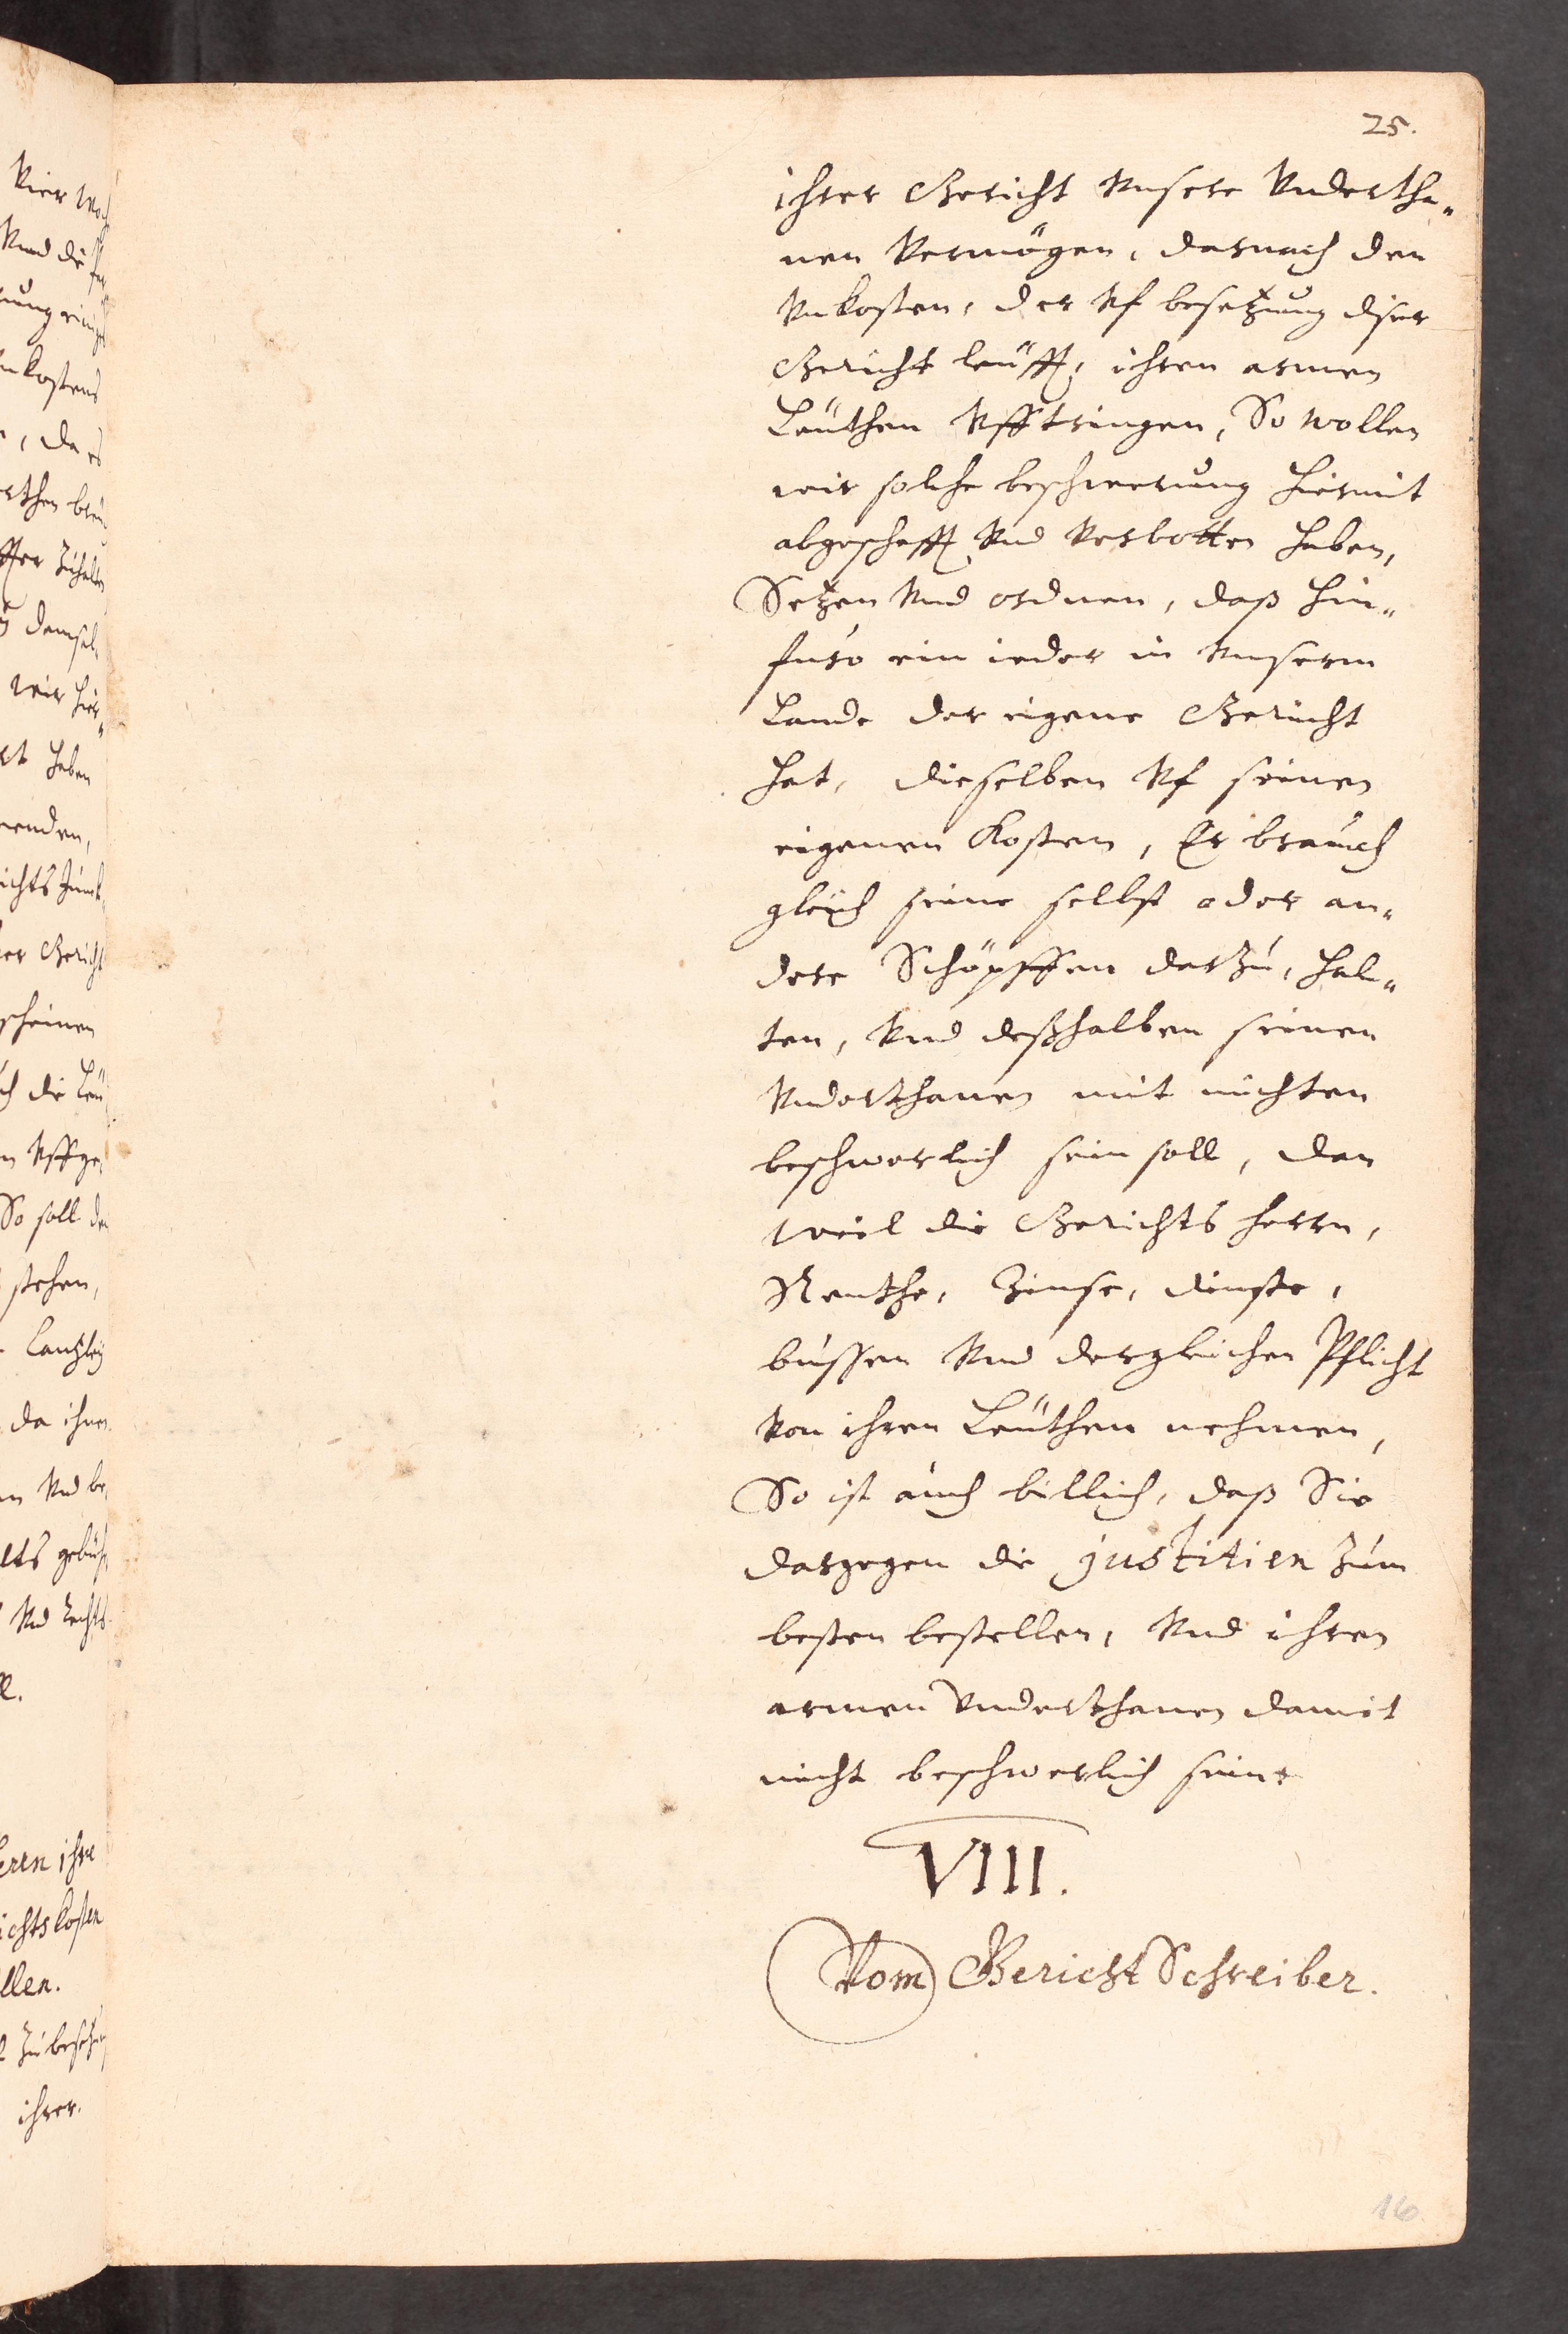 25.
ihrer Gericht Vnsere Vndertha„
nen Vermögen, darnach den
Vnkosten, der Vf besetzung diser
Gericht leüfft, ihren armen
Leüthen Vfftringen, So wollen
wir solche beschwerung hiermit
abgeschafft Vnd Verbotten haben,
Setzen Vnd ordnen, daß hin„
furo ein ieder in Vnserm
Lande der eigene Gericht
hat, dieselben Vf seinen
eigenen Kosten, Er brauch
gleich seine selbst oder an„
dere Schöpffen darzu, hal„
ten, Vnd deßhalben seinen
Vnderthanen mit nichten
beschwerlich sein soll, dan
weil die Gerichts herrn,
Renthe, Zinse, dinste,
bussen Vnd dergleichen Pflicht
Von ihren Leüthen nehmen,
So ist auch billich, daß Sie
dargegen die justitien zum
besten bestellen, Vnd ihren
armen Vnderthanen damit
nicht beschwerlich sein.
VIII.
Vom Gericht Schreiber.
16